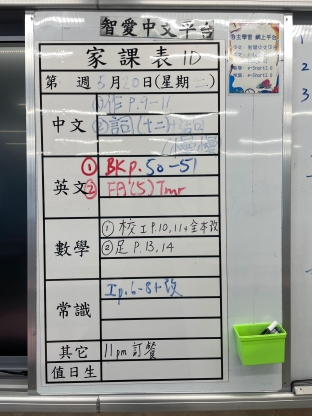 智愛中文平台
家課表 1D
第 週 5月20日(星期二)
中文
①作 P.9-11
②詞(十二)+詞
英文
① BK p. 50-51
② FA(5) Tmr
數學
①校工P.10,11+全本改
②足 P.13,14
常識
工p.6-8+改
其它
11pm 訂餐
值日生
自主學習 網上平台